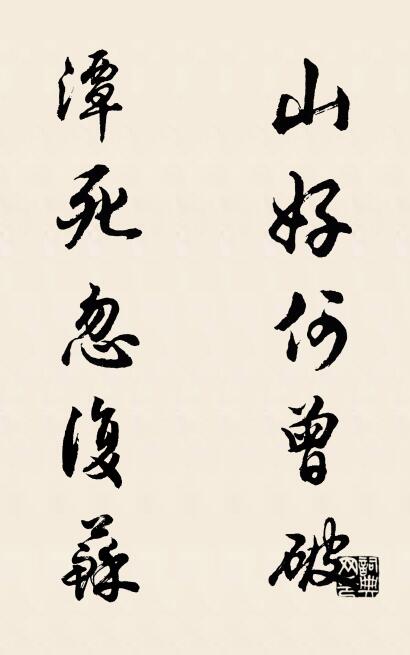 山好何曾破
潭死忽復蘇
詞典网